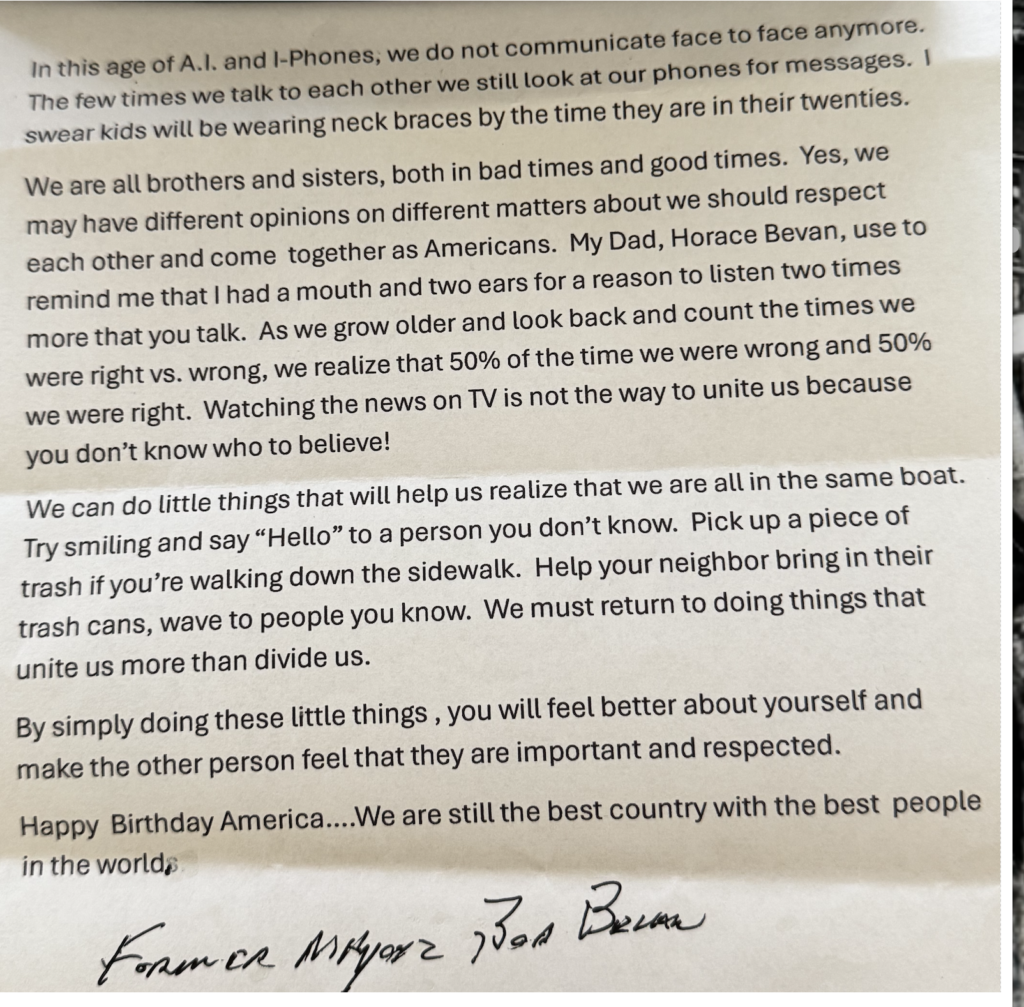 In this age of A.I. and I-Phones, we do not communicate face to face anymore.
The few times we talk to each other we still look at our phones for messages. I
swear kids will be wearing neck braces by the time they are in their twenties.
We are all brothers and sisters, both in bad times and good times. Yes, we
may have different opinions on different matters about we should respect
each other and come together as Americans. My Dad, Horace Bevan, use to
remind me that I had a mouth and two ears for a reason to listen two times
more that you talk. As we grow older and look back and count the times we
were right vs. wrong, we realize that 50% of the time we were wrong and 50%
we were right. Watching the news on TV is not the way to unite us because
you don’t know who to believe!
We can do little things that will help us realize that we are all in the same boat.
Try smiling and say “Hello” to a person you don’t know. Pick up a piece of
trash if you’re walking down the sidewalk. Help your neighbor bring in their
trash cans, wave to people you know. We must return to doing things that
unite us more than divide us.
By simply doing these little things , you will feel better about yourself and
make the other person feel that they are important and respected.
Happy Birthday America....We are still the best country with the best people
in the world
Former Mayor Bob Bevan